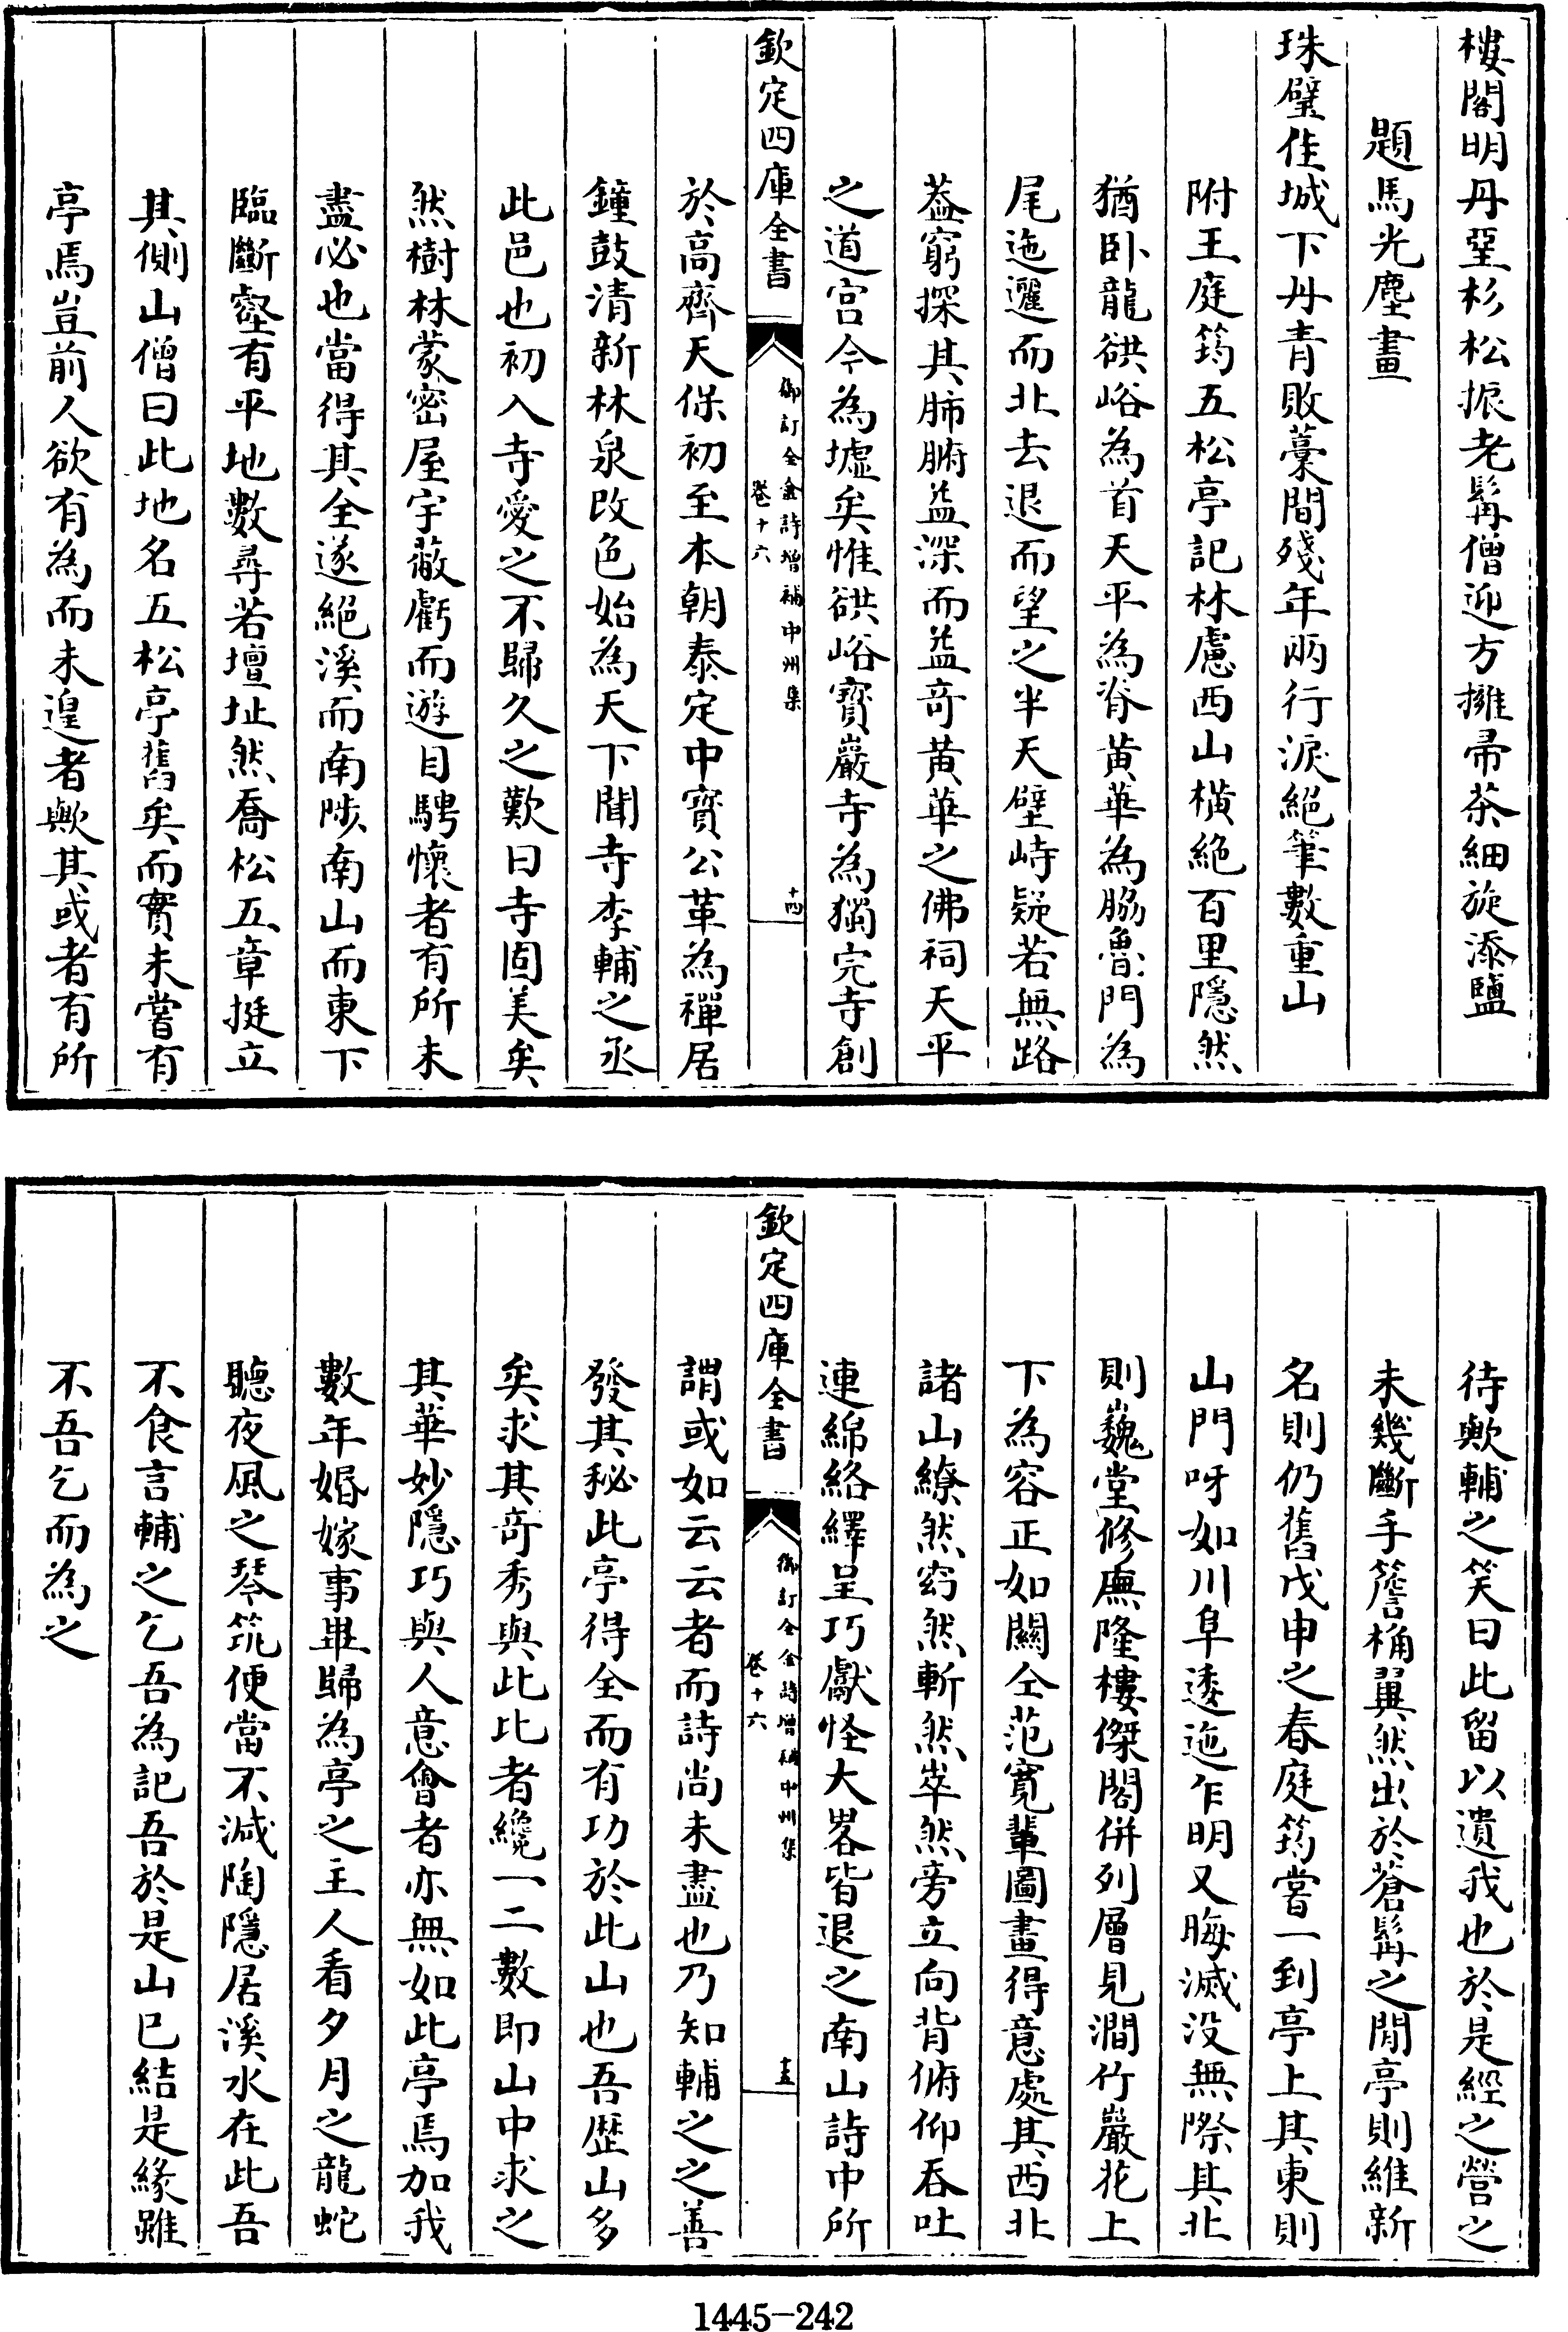 樓閣明丹堊杉松振老髯僧迎方擁帚茶細旋添鹽
題馬光塵畫
珠璧佳城下丹青敗藁間殘年兩行淚絕筆數重山
附王庭筠五松亭記林慮西山橫絶百里隱然
猶卧龍谼峪為首天平為脊黄華為脇魯門為
尾迤邐而北去退而望之半天壁峙疑若無路
葢窮探其肺腑益深而益竒黄華之佛祠天平
之道宫今為墟矣惟谼峪寳巖寺為獨完寺創
欽定四庫全書
御訂全金詩增補中州集
卷十六
十四
於高齊天保初至本朝泰定中寳公革為禪居
鐘鼓清新林泉改色始為天下聞寺李輔之丞
此邑也初入寺愛之不歸久之歎曰寺固美矣
然樹林蒙密屋宇蔽虧而遊目騁懷者有所未
盡必也當得其全遂絕溪而南陟南山而東下
臨斷壑有平地數尋若壇址然喬松五章挺立
其側山僧曰此地名五松亭舊矣而實未嘗有
亭焉豈前人欲有為而未遑者歟其或者有所
待歟輔之笑曰此留以遺我也於是經之營之
未幾斷手簷桷翼然出於蒼髯之閒亭則維新
名則仍舊戊申之春庭筠嘗一到亭上其東則
山門呀如川阜逶迤乍明又晦滅没無際其北
則巍堂修廡隆樓傑閣併列層見澗竹巖花上
下為容正如關仝范寛輩圖畫得意處其西北
諸山繚然窈然斬然崒然旁立向背俯仰吞吐
連綿絡繹呈巧獻怪大畧皆退之南山詩中所
欽定四庫全書
御訂全金詩增補中州集
卷十六
十五
謂或如云云者而詩尚未盡也乃知輔之之善
發其秘此亭得全而有功於此山也吾歴山多
矣求其竒秀與此比者纔一二數即山中求之
其華妙隱巧與人意會者亦無如此亭焉加我
數年婚嫁事畢歸為亭之主人看夕月之龍蛇
聽夜風之琴筑便當不減陶隱居溪水在此吾
不食言輔之乞吾為記吾於是山已結是緣雖
不吾乞而為之
1445-242